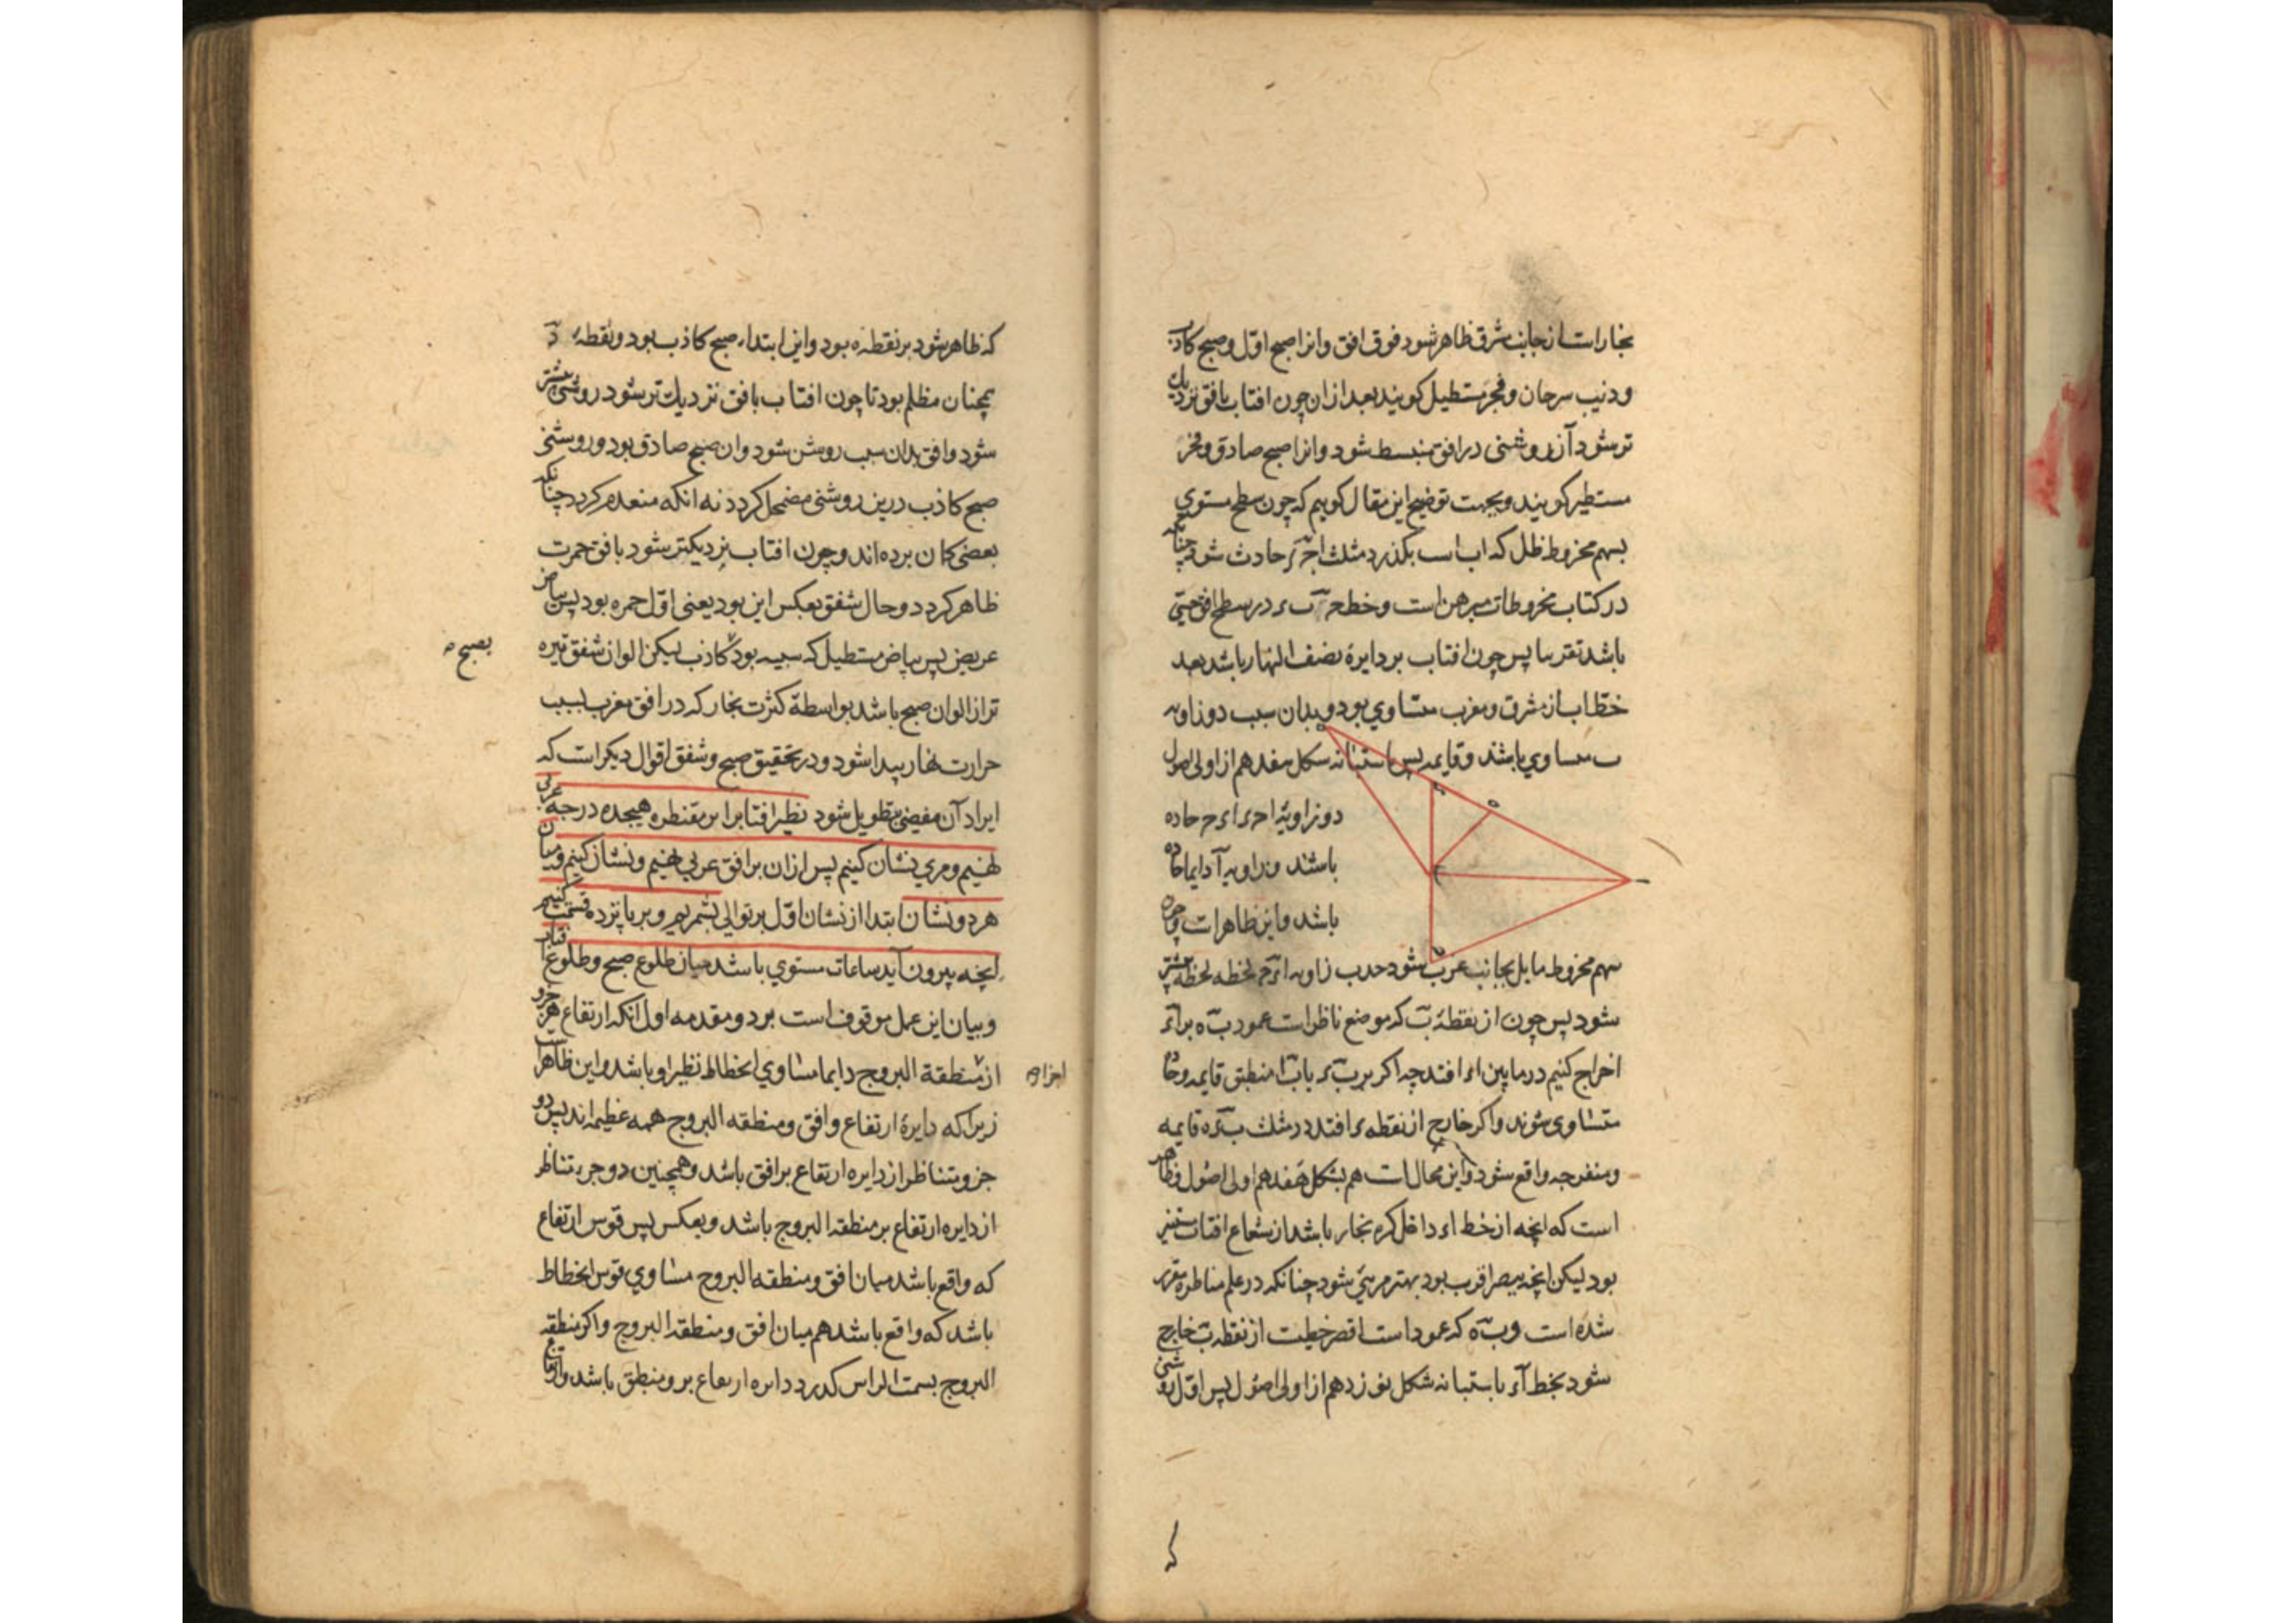 بخاراست از جانب شرق ظاهر شود فوق افق و انرا صبح اول و صبح کاذب
و ذنب سرحان و فجر مستطیل کویند بعد از ان چون افتاب بافق نزدیک
تر شود آن روشنی در افق منبسط شود و انرا صبح صادق و فجر
مستطیر کویند و بجهت توضیح این مقال کوییم که چون سطح مستوی
بسهم مخروط ظل که اب است بکذرد مثلث حادث شود چنانکه
در کتاب مخروطات مبرهن است و خط در سطح افق حسی
باشد تقریبا پس چون افتاب بر دایرهٔ نصف النهار باشد بعد
خط اب از مشرق و مغرب متساوی بود و بدان سبب دو زاویه
ب متساوی باشند و قایمه پس باستبانه شکل هفدهم از اولی اصول
دو زاویهٔ حاده
باشند و زاویه آ دایما حاده
باشد و این ظاهر است و چون
سهم مخروط مایل بجانب غرب شود زاویه لحظه لحظه بیشتر
شود پس چون از نقطهٔ ب که موضع ناظر است عمود ب ه بر اء
اخراج کنیم در مابین اء افتد چه اکر بر منطبق قایمه و حاده
متساوی شوند و اکر خارج از نقطه ء افتد در مثلث قایمه
و منفرجه واقع شود و این محالست هم بشکل هفدهم اولی اصول و ظاهر
است که انچه از خط اء داخل کره بخار باشد از شعاع افتاب مستنیر
بود لیکن انچه ببصر اقرب بود بهتر مرئی شود چنانکه در علم مناظره مقرر
شده است و ب ه که عمود است اقصر خطیست از نقطه ب خارج
شود بخط اء باستبانه شکل نوزدهم از اولی اصول پس اول روشنی
که ظاهر شود بر نقطه ه بود و این ابتداء صبح کاذب بود و نقطهٔ ء
همچنان مظلم بود تا چون افتاب بافق نزدیک تر شود روشنی بیشتر
شود و افق بدان سبب روشن شود و ان صبح صادق بود و روشنی
صبح کاذب درین روشنی مضمحل کردد نه انکه منعدم کردد چنانکه
بعضی کمان برده اند و چون افتاب نزدیکتر شود بافق حمرت
ظاهر کردد و حال شفق بعکس این بود یعنی اول حمره بود پس بیاض
عریض پس بیاض مستطیل که شبیه بود کاذب لیکن الوان شفق تیره
بصبح
تر از الوان صبح باشد بواسطهٔ کثرت بخار که در افق مغرب بسبب
حرارت نهار پیدا شود و در تحقیق صبح و شفق اقوال دیکر است که
ایراد آن مفضی بتطویل شود نظیر افتاب را بر مقنطره هیجده درجه غربی
نهیم و مری نشان کنیم پس از ان بر افق غربی نهیم و نشان کنیم و میان
هر دو نشان ابتدا از نشان اول بر توالی بشمریم و بر پانزده قسمت کنیم
انچه بیرون آید ساعات مستوی باشد میان طلوع صبح و طلوع افتاب
و بیان این عمل موقوف است بر دو مقدمه اول انکه ارتفاع هر جزو
از منطقة البروج دایما مساوی انحطاط نظیر او باشد و این ظاهر است
اجزاء
زیرا که دایرهٔ ارتفاع و افق و منطقه البروج همه عظیمه اند پس دو
جزو متناظر از دایره ارتفاع بر افق باشد و همچنین دو جزء متناظر
از دایره ارتفاع بر منطقه البروج باشد و بعکس پس قوس ارتفاع
که واقع باشد میان افق و منطقه البروج مساوی قوس انحطاط
باشد که واقع باشد هم میان افق و منطقه البروج و اکر منطقه
البروج بسمت الراس کذرد دایره ارتفاع بر و منطبق باشد و ارتفاع